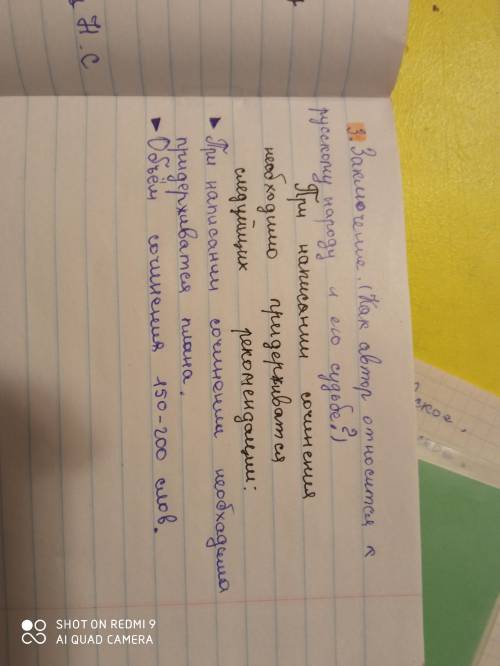 Н. С
3. Заключение. (Как автор относится к
русскому народу и его судьбе?)
При написании сочинения
необходимо придерживатся
следующих рекомендации:
▶ При написании сочинении необходимо
придерживатся плана.
▶ Объём сочинения 150-200 слов.
ское,
SHOT ON REDMI 9
AI QUAD CAMERA